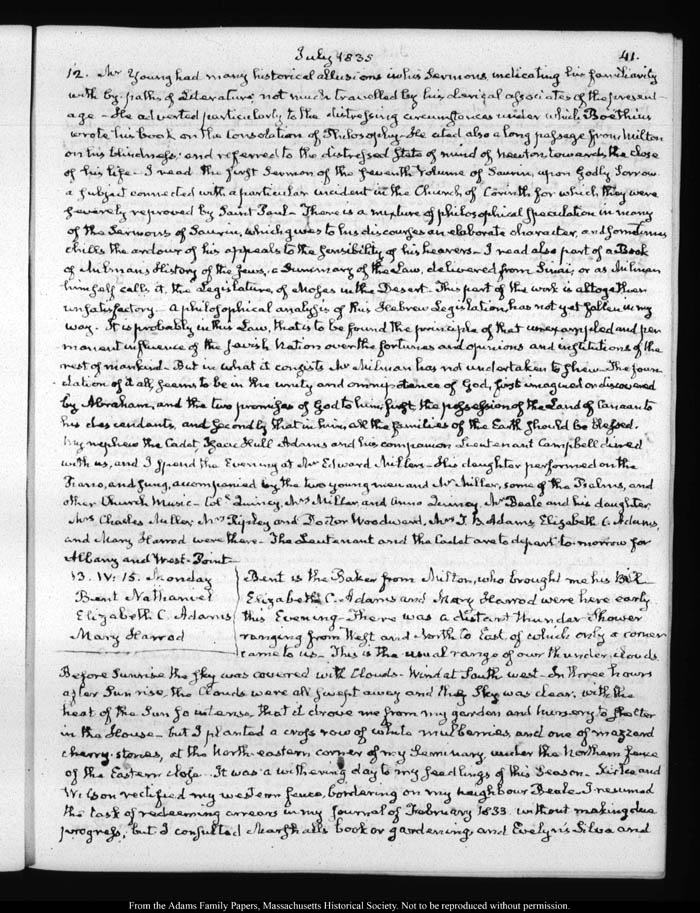 July 1835 41.
12. Mr Young had many historical allusions in his Sermons, indicating his familiarity
with by-paths of Literature not much travelled by his clerical associates of the present
age - He adverted particularly to the distressing circumstances under which Boethius
wrote his book on the Consolation of Philosophy - He cited also a long passage from Milton
on his blindness, and referred to the distressed State of mind of Newton, towards the close
of his life - I read the first Sermon of the seventh Volume of Saurin, upon Godly Sorrow
a subject connected with a particular incident in the Church of Corinth, for which they were
severely reproved by Saint Paul - There is a mixture of philosophical Speculation in many
of the Sermons of Saurin, which gives to his discourses an elaborate character, and sometimes
chills the ardour of his appeals to the sensibility of his hearers - I read also part of a Book
of Milman's History of the Jews, a Summary of the Law, delivered from Sinai; or as Milman
himself calls it, the Legislature of Moses in the Desert - This part of the work is altogether
unsatisfactory - A philosophical analysis of this Hebrew Legislation, has not yet fallen in my
way - It is probably in this Law, that is to be found the principle of that unexampled and per
manent influence of the Jewish Nation over the fortunes and opinions and institutions of the
rest of mankind - But in what it consists Mr Milman has not undertaken to shew - The foun
dation of it all, seems to be in the unity and omnipotence of God, first imagined or discovered
by Abraham, and the two promises of God to him, first the possession of the Land of Canaan to
his descendants, and secondly that in him, all the families of the Earth should be blessed.
My nephew the Cadet, Isaac Hull Adams and his companion Lieutenant Campbell dined
with us, and I spend the Evening at Mr Edward Miller's - His daughter performed on the
Piano, and sung, accompanied by the two young men and Mr Miller, some of the Psalms, and
other Church Music - Col. Quincy, Mrs Miller, and Anna Quincy, Mr Beale and his daughter
Mrs Charles Miller, Mrs Ripley and Doctor Woodward, Mrs T. B. Adams, Elizabeth C. Adams,
and Mary Harrod were there - The Lieutenant and the Cadet are to depart to-morrow for
Albany and West-Point -
13. IV: 15. Monday
Brent Nathaniel
Elizabeth C. Adams
Mary Harrod
Bent is the Baker from Milton, who brought me his bill
Elizabeth C. Adams and Mary Harrod were here early
this Evening - There was a distant thunder Shower
ranging from West and North to East, of which only a corner
came to us - This is the usual range of our thunder clouds
Before Sunrise the sky was covered with Clouds - Wind at South west - In three hours
after Sun rise, the Clouds were all swept away and the Sky was clear, with the
heat of the Sun so intense, that it drove me from my garden and nursery to shelter
in the House - but I planted a cross row of white mulberries, and one of mazzard
cherry-stones, at the North-eastern corner of my Seminary, under the Northern fence
of the Eastern close - It was a withering day to my seedlings of this Season - Kirke and
Wilson rectified my western fence, bordering on my neighbour Beale - I resumed
the task of redeeming arrears in my Journal of February 1833 without making due
progress, but I consulted Marshall's book on gardening, and Evelyn's Silva and
From the Adams Family Papers, Massachusetts Historical Society. Not to be reproduced without permission.